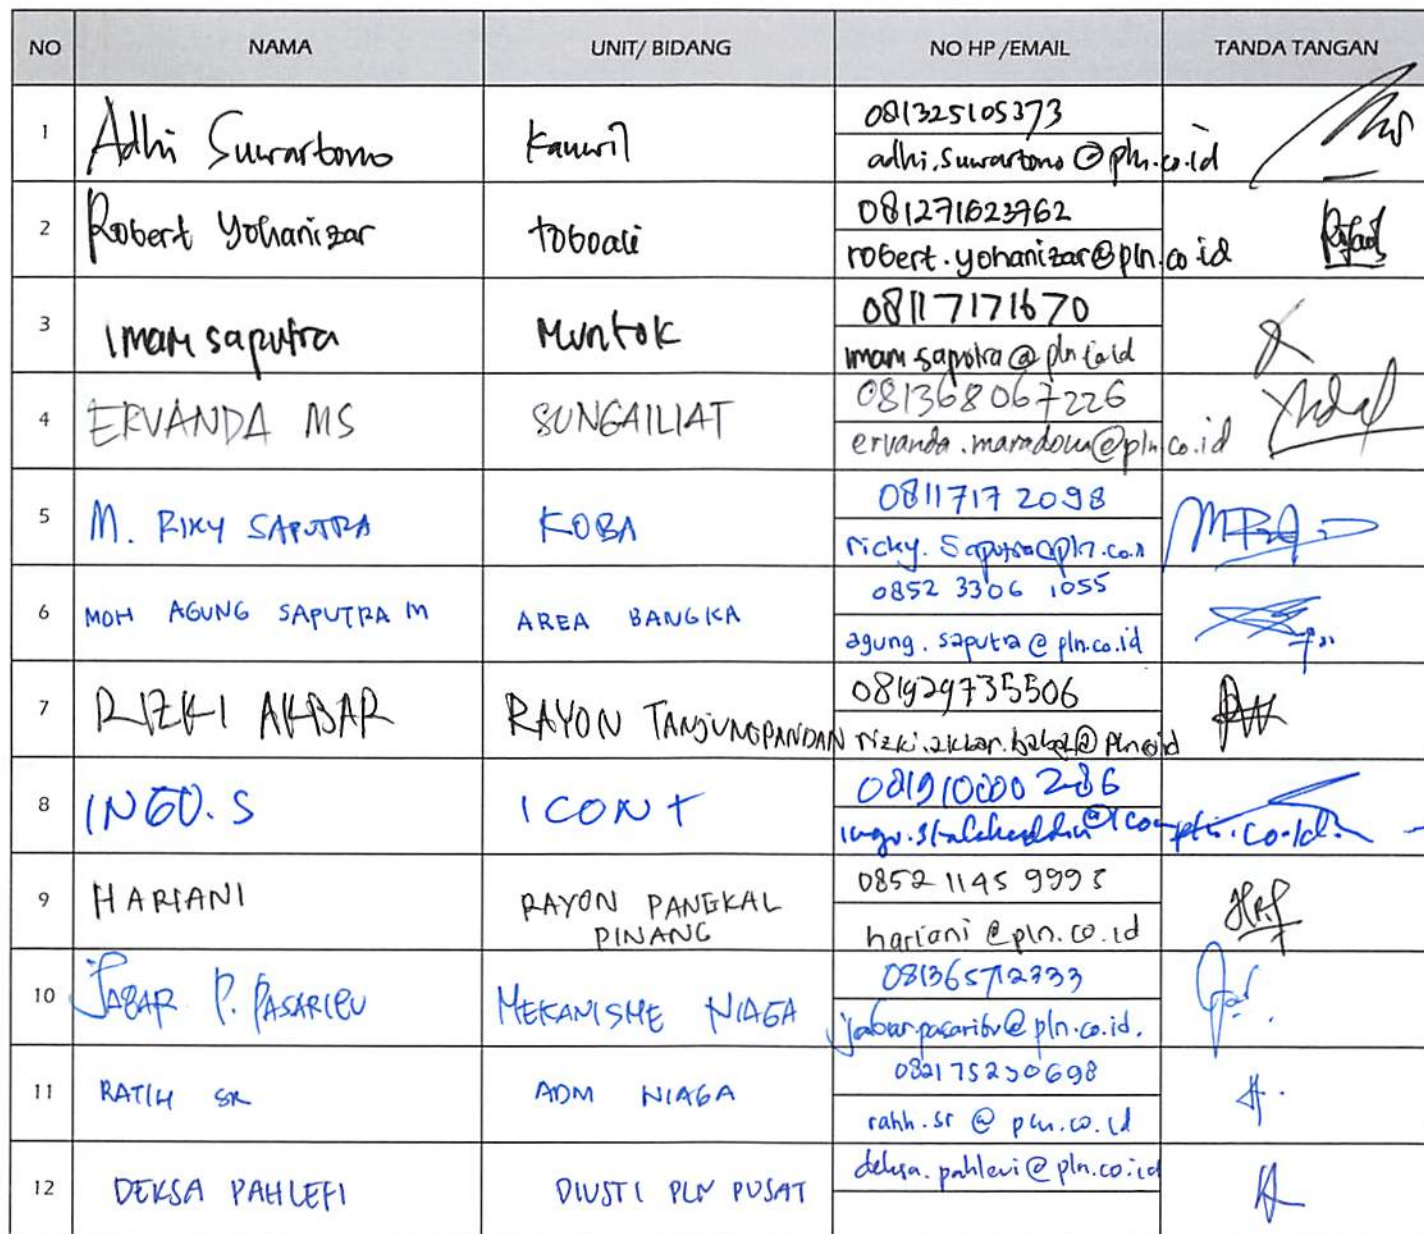 NO NAMA UNIT/ BIDANG NO HP /EMAIL TANDA TANGAN
1 Adhi Suwartomo Kanwil 081325105373
adhi.suwartomo@pln.co.id
2 Robert Yohanizar toboali 081271623762
robert.yohanizar@pln.co.id
3 imam saputra Muntok 08117171670
imam.saputra@pln.co.id
4 ERVANDA MS SUNGAILIAT 081368067226
ervanda.maradona@pln.co.id
5 M. RIKY SAPUTRA KOBA 0811717 2098
ricky.saputra@pln.co.i
6 MOH AGUNG SAPUTRA M AREA BANGKA 0852 3306 1055
agung.saputra@pln.co.id
7 RIZKI AKBAR RAYON TANJUNGPANDAN 081929735506
rizki.akbar.babel@pln.co.id
8 INGO.S ICON + 081910000286
9 HARIANI RAYON PANGKAL PINANG 0852 1145 9993
hariani@pln.co.id
10 JABAR P. PASARIBU MEKANISME NIAGA 081365712333
jabar.pasaribu@pln.co.id.
11 RATIH SR ADM NIAGA 082175230698
ratih.sr@pln.co.id
12 DEKSA PAHLEFI DIVSTI PLN PUSAT deksa.pahlevi@pln.co.id